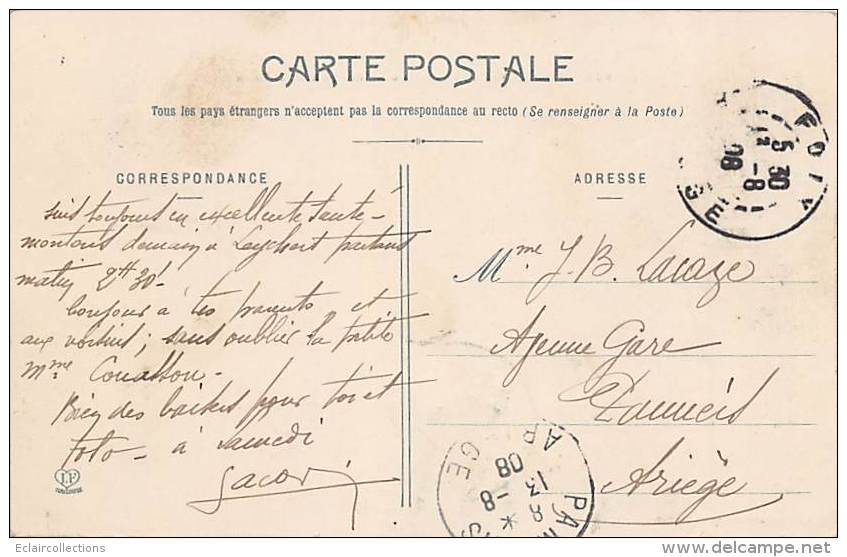 CARTE POSTALE
Tous les pays étrangers n'acceptent pas la correspondance au recto (Se renseigner à la Poste)
CORRESPONDANCE
ADRESSE
suis toujours en excellente santé -
montons demain à partant
matin 2H 30'
bonjour à tes parents et
aux voisins; sans oublier la petite
Mme
Bien des baisers pour toi et
Toto - à samedi
Mme J. B. Lacaze
Avenue Gare
Pamiers
Ariège
FOIX
5 30
-8
08
GE
PAM S
AR GE
8
13 -8
08
LF
TOULOUSE
Eclaircollections
delcampe.net